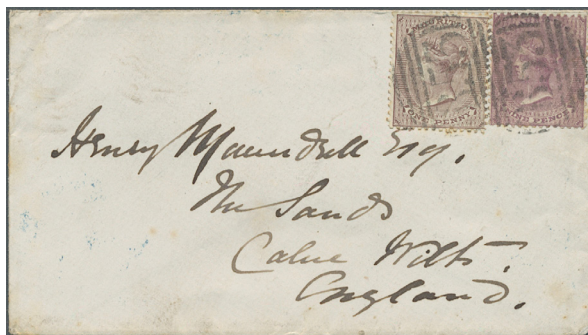 MAURITIUS
ONE PENNY
PENCE
Henry Maundrell Esq.
The Sands
Calne Wilts.
England.